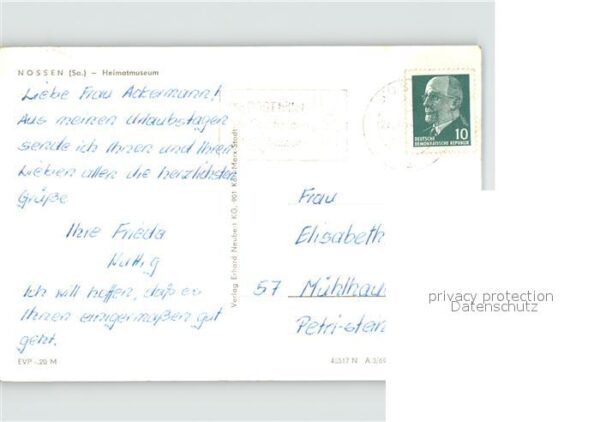 NOSSEN (Sa.) – Heimatmuseum
Liebe Frau Ackermann!
Aus meinen Urlaubstagen
sende ich Ihnen und Ihren
Lieben allen die herzlichsten
Grüße
Ihre Frieda
Ich will hoffen, daß es
Ihnen einigermaßen gut
geht.
EVP -.20 M
Verlag Erhard Neubert KG, 901 Karl-Marx-Stadt
10
DEUTSCHE
DEMOKRATISCHE REPUBLIK
Frau
Elisabeth
57 Mühlhau
Petri-stein
privacy protection
Datenschutz